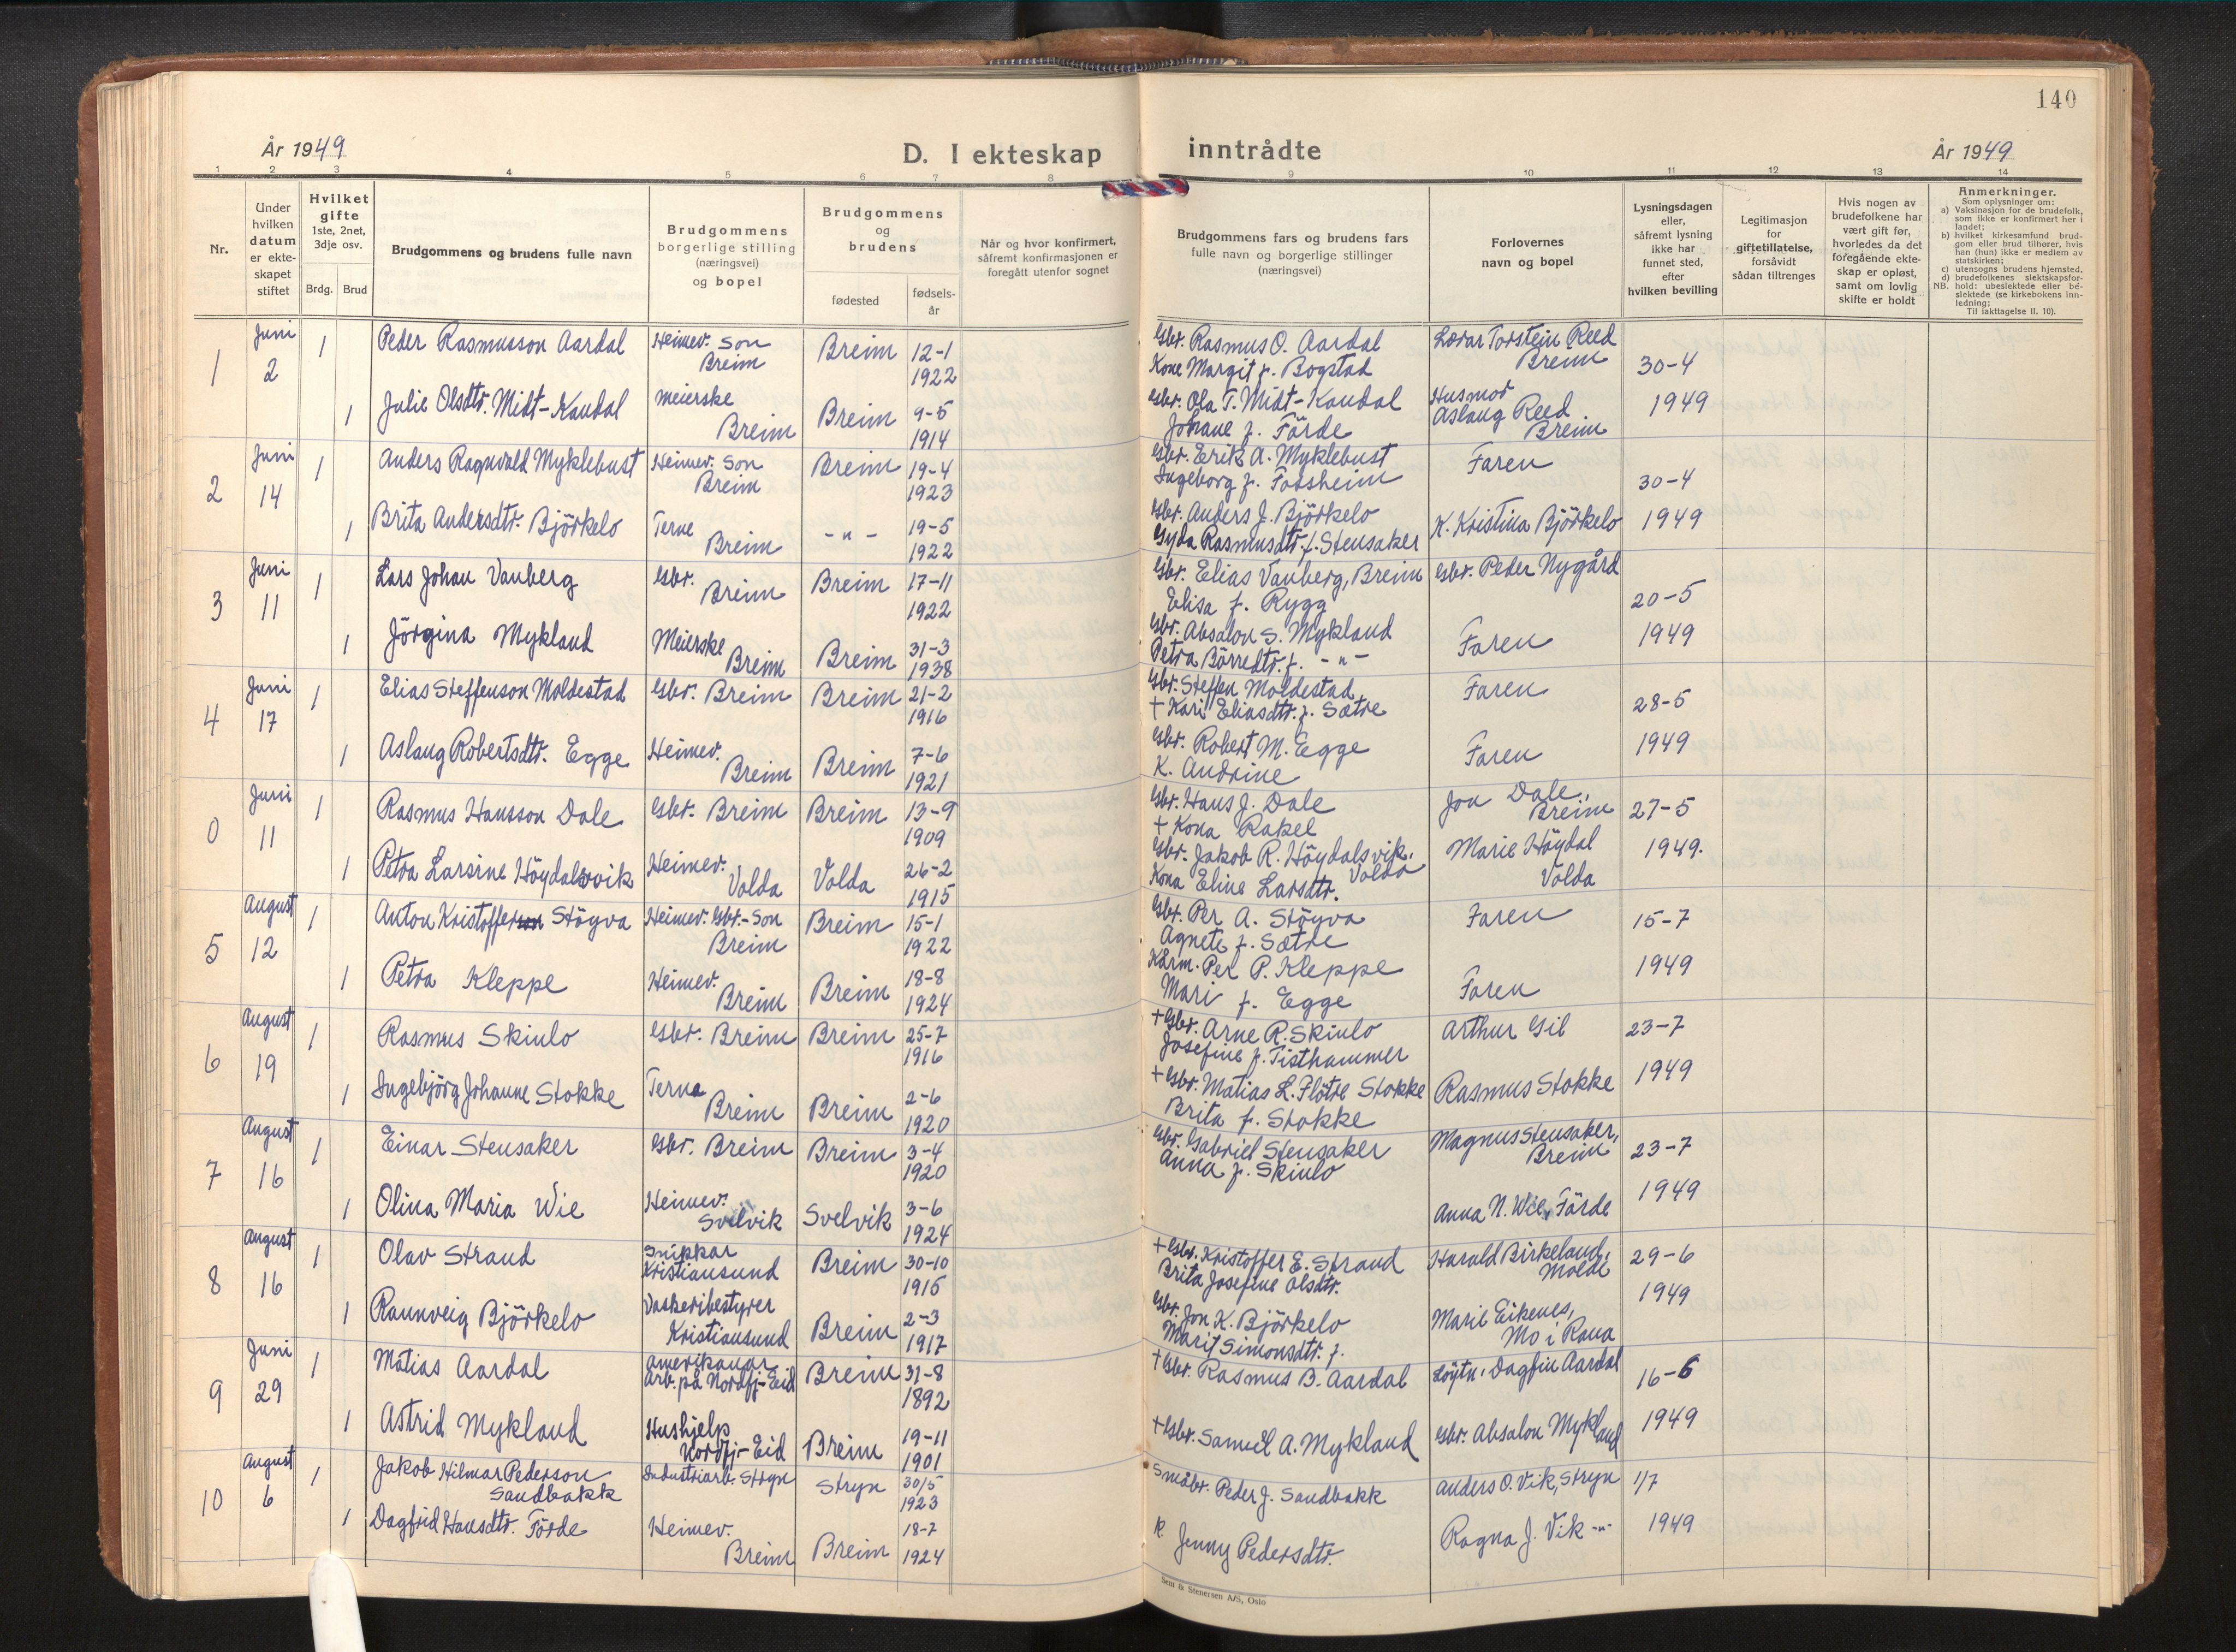 140
År 1949
D. I ekteskap inntrådte
År 1949
1 2 3 4 5 6 7 8 9 10 11 12 13 14
Nr.
Under hvilken datum er ekte-skapet stiftet
Hvilket gifte 1ste, 2net, 3dje osv.
Brdg. Brud
Brudgommens og brudens fulle navn
Brudgommens borgerlige stilling (næringsvei) og bopel
Brudgommens og brudens
fødested
fødsels-år
Når og hvor konfirmert, såfremt konfirmasjonen er foregått utenfor sognet
Brudgommens fars og brudens fars fulle navn og borgerlige stillinger (næringsvei)
Forlovernes navn og bopel
Lysningsdagen eller, såfremt lysning ikke har funnet sted, efter hvilken bevilling
Legitimasjon for giftetillatelse, forsåvidt sådan tiltrenges
Hvis nogen av brudefolkene har vært gift før, hvorledes da det foregående ekte-skap er opløst, samt om lovlig skifte er holdt
Anmerkninger.
Som oplysninger om:
a) Vaksinasjon for de brudefolk, som ikke er konfirmert her i landet;
b) hvilket kirkesamfund brud-gom eller brud tilhører, hvis han (hun) ikke er medlem av statskirken;
c) utensogns brudens hjemsted,
d) brudefolkenes slektskapsfor-hold: ubeslektede eller be-slektede (se kirkebokens inn-ledning;
NB.
Til iakttagelse II. 10).
1 Juni 2 1 Peder Rasmusson Aardal Heimev. son Breim Breim 12-1 1922 Gbr. Rasmus O. Aardal Kone Margit f. Bogstad Lærar Torstein Reed Breim 30-4 1949
1 Julie Olsdtr. Midt-Kandal Meierske Breim Breim 9-5 1914 Gbr. Ola T. Midt-Kandal Johane f. Førde Husmor Aslaug Reed Breim
2 Juni 14 1 Anders Ragnvald Myklebust Heimev. son Breim Breim 19-4 1923 Gbr. Erik A. Myklebust Ingeborg f. Fossheim Faren 30-4 1949
1 Brita Andersdtr. Björkelo Terne Breim -"- 19-5 1922 Gbr. Anders J. Björkelo Gyda Rasmusdtr. f. Stensaker K. Kristina Björkelo
3 Juni 11 1 Lars Johan Vanberg Gbr. Breim Breim 17-11 1922 Gbr. Elias Vanberg, Breim Elisa f. Rygg Gbr. Peder Nygård 20-5 1949
1 Jörgina Mykland Meierske Breim Breim 31-3 1938 Gbr. Absalon S. Mykland Petra Börredtr. f. -"- Faren
4 Juni 17 1 Elias Steffenson Moldestad Gbr. Breim Breim 21-2 1916 Gbr. Steffen Moldestad + Kari Eliasdtr. f. Sætre Faren 28-5 1949
1 Aslaug Robertsdtr. Egge Heimev. Breim Breim 7-6 1921 Gbr. Robert M. Egge K. Andrine Faren
0 Juni 11 1 Rasmus Hansson Dale Gbr. Breim Breim 13-9 1909 Gbr. Hans J. Dale + Kona Rakel Jon Dale, Breim 27-5 1949.
1 Petra Larsine Höydalsvik Heimev. Volda Volda 26-2 1915 Gbr. Jakob R. Höydalsvik, Volda Kona Eline Larsdtr. Marie Höydal Volda
5 August 12 1 Anton Kristoffer Støyva Heimev. Gbr.-Son Breim Breim 15-1 1922 Gbr. Per A. Støyva Agnete f. Sætre Faren 15-7 1949
1 Petra Kleppe Heimev. Breim Breim 18-8 1924 Kårm. Per P. Kleppe Mari f. Egge Faren
6 August 19 1 Rasmus Skinlo Gbr. Breim Breim 25-7 1916 + Gbr. Arne R. Skinlo Josefine f. Tisthammer Arthur Gil 23-7 1949
1 Ingebjörg Johanne Stokke Terna Breim Breim 2-6 1920 + Gbr. Matias L. Flötre Stokke Brita f. Stokke Rasmus Stokke
7 August 16 1 Einar Stensaker Gbr. Breim Breim 3-4 1920 Gbr. Gabriel Stensaker Anna f. Skinlo Magnus Stensaker, Breim 23-7 1949
1 Olina Maria Wie Heimev. Svelvik Svelvik 3-6 1924 Anna N. Wie, Förde
8 August 16 1 Olav Strand Snikkar Kristiansund Breim 30-10 1915 + Gbr. Kristoffer E. Strand Brita Josefine Olsdtr. Harald Birkeland, Molde 29-6 1949
1 Rannveig Björkelo Vaskeribestyrer Kristiansund Breim 2-3 1917 Gbr. Jon K. Björkelo Marit Simonsdtr. f. Marie Eikenes, Mo i Rana
9 Juni 29 1 Matias Aardal amerikanar arb. på Nordfj-Eid Breim 31-8 1892 + Gbr. Rasmus B. Aardal Löytn. Dagfin Aardal 16-6 1949
1 Astrid Mykland Hushjelp Nordfj-Eid Breim 19-11 1901 + Gbr. Samuel A. Mykland Gbr. Absalon Mykland
10 August 6 1 Jakob Hilmar Pederson Sandbakk Industriarb. Stryn Stryn 30/5 1923 Småbr. Peder J. Sandbakk Anders O. Vik, Stryn 1/7 1949
1 Dagfrid Hansdtr. Förde Heimev. Breim Breim 18-7 1924 K Jenny Pedersdtr. Ragna J. Vik -"-
Sem & Stenersen A/S, Oslo